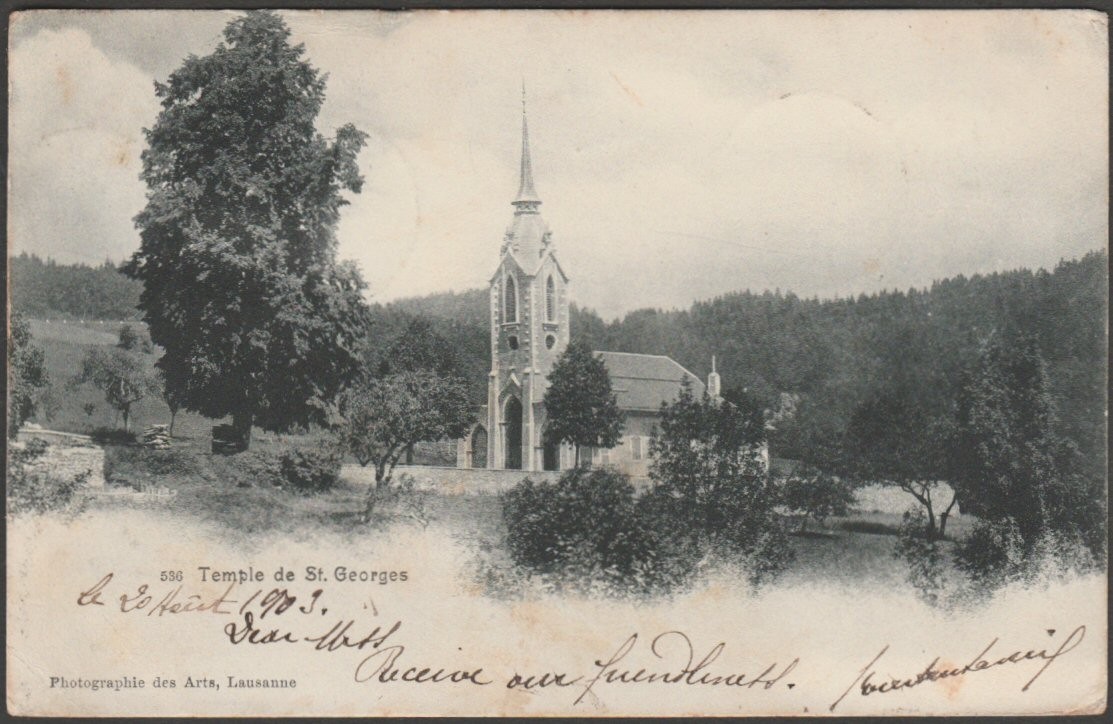 536 Temple de St. Georges
Le 20 Août 1903.
Dear
Receive our friendliness.
Photographie des Arts, Lausanne